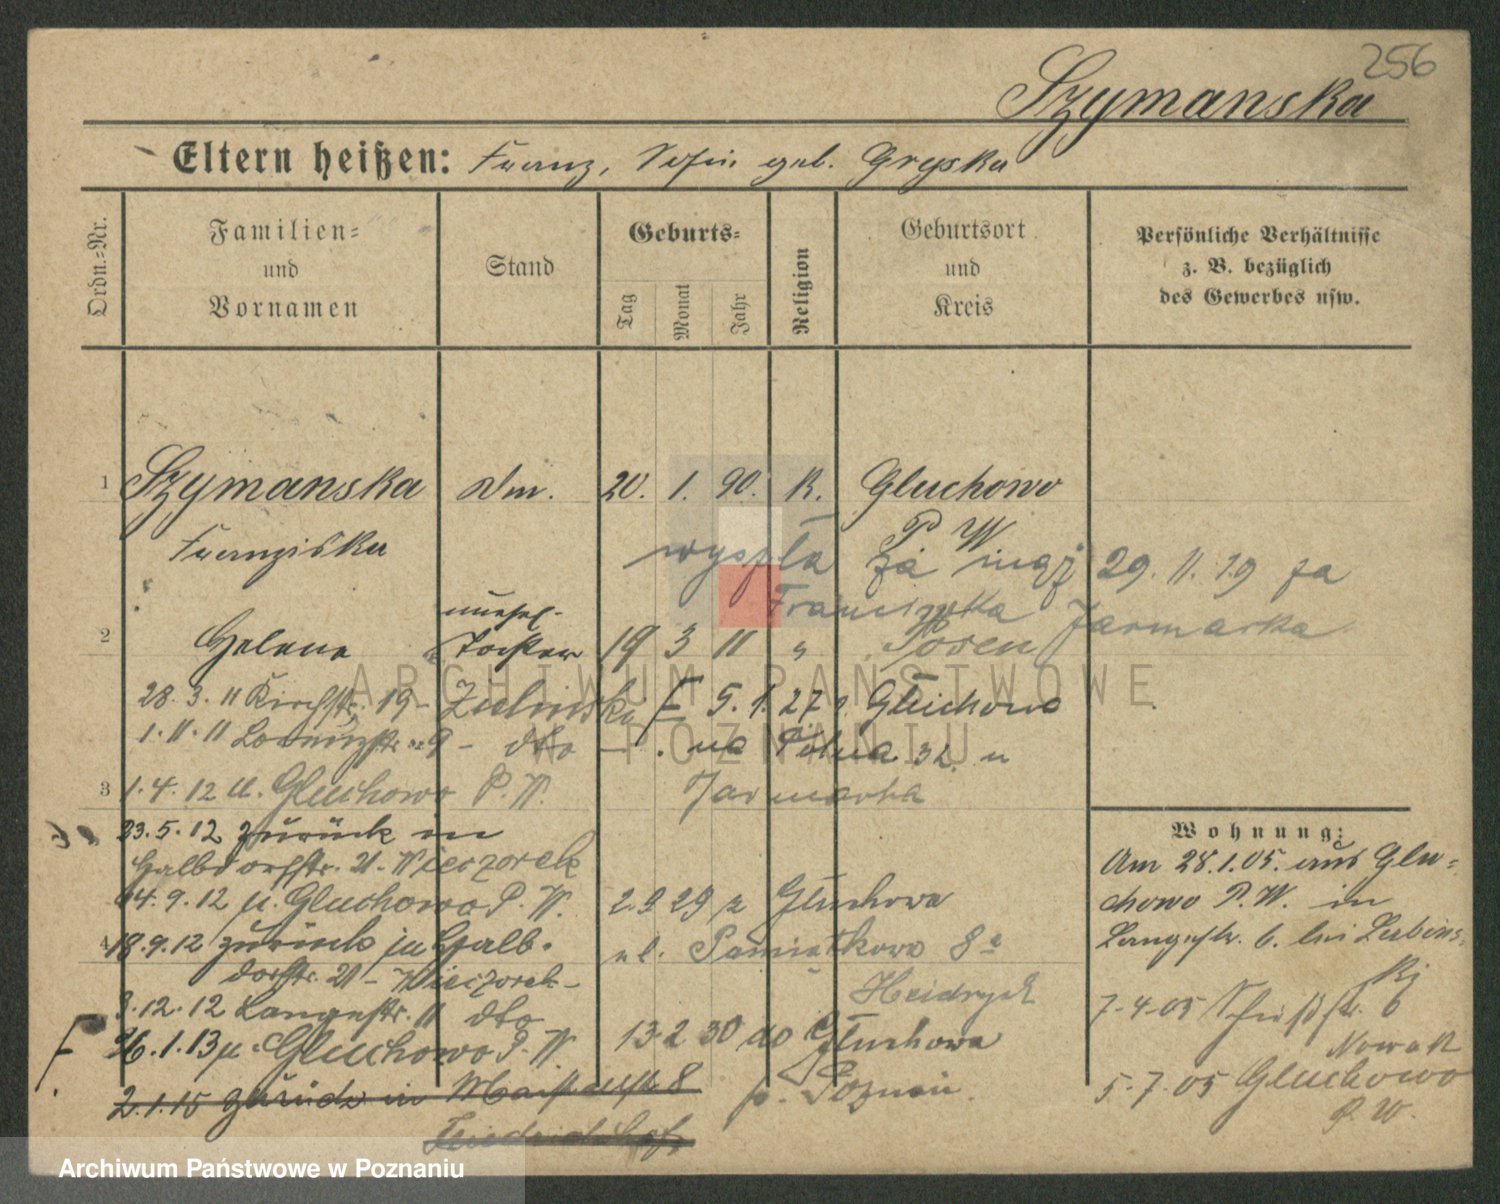 256
Szymanska
Eltern heißen: Franz, Sofie geb. Gryska
Ordn.=Nr.
Familien=
und
Vornamen
Stand
Geburts=
Tag
Monat
Jahr
Religion
Geburtsort
und
Kreis
Persönliche Verhältnisse
z. B. bezüglich
des Gewerbes usw.
1 Szymanska 20. 1. 90. K. Gluchowo
Franziska P W
wyszła za mąż 29. 11. 19 za
Franciszka Jarmarka
2 Helene unehel. Tochter 19 3 11 " Posen
28. 3. 11 19 - F 5. 1. 27 Głuchowo
1. 11. 11 9 - dto - na 32. u
3 1. 4. 12 u. Gluchowo P. W. Jarmarka
23. 5. 12 zurück in
Halbdorfstr. 21 - Wieczorek
14. 9. 12 u. Gluchowo P. W. 2. 9 29 z Głuchowa
4 18. 9. 12 zurück in Halb=
dorfstr. 21 - Wieczorek -
ul. Pamiątkowa 8a
Heidrych
3. 12. 12 Langestr. 11 dto
F 26. 1. 13 u. Gluchowo P. W 13 2 30 do Głuchowa
2. 1. 15 zurück in 8 p. Poznań.
Wohnung:
Am 28. 1. 05. aus Glu=
chowo P. W. in
Langestr. 6. bei
7-4-05 6
Nowak
5. 7. 05 Gluchowo
P. W.
ARCHIWUM PAŃSTWOWE
W POZNANIU
Archiwum Państwowe w Poznaniu